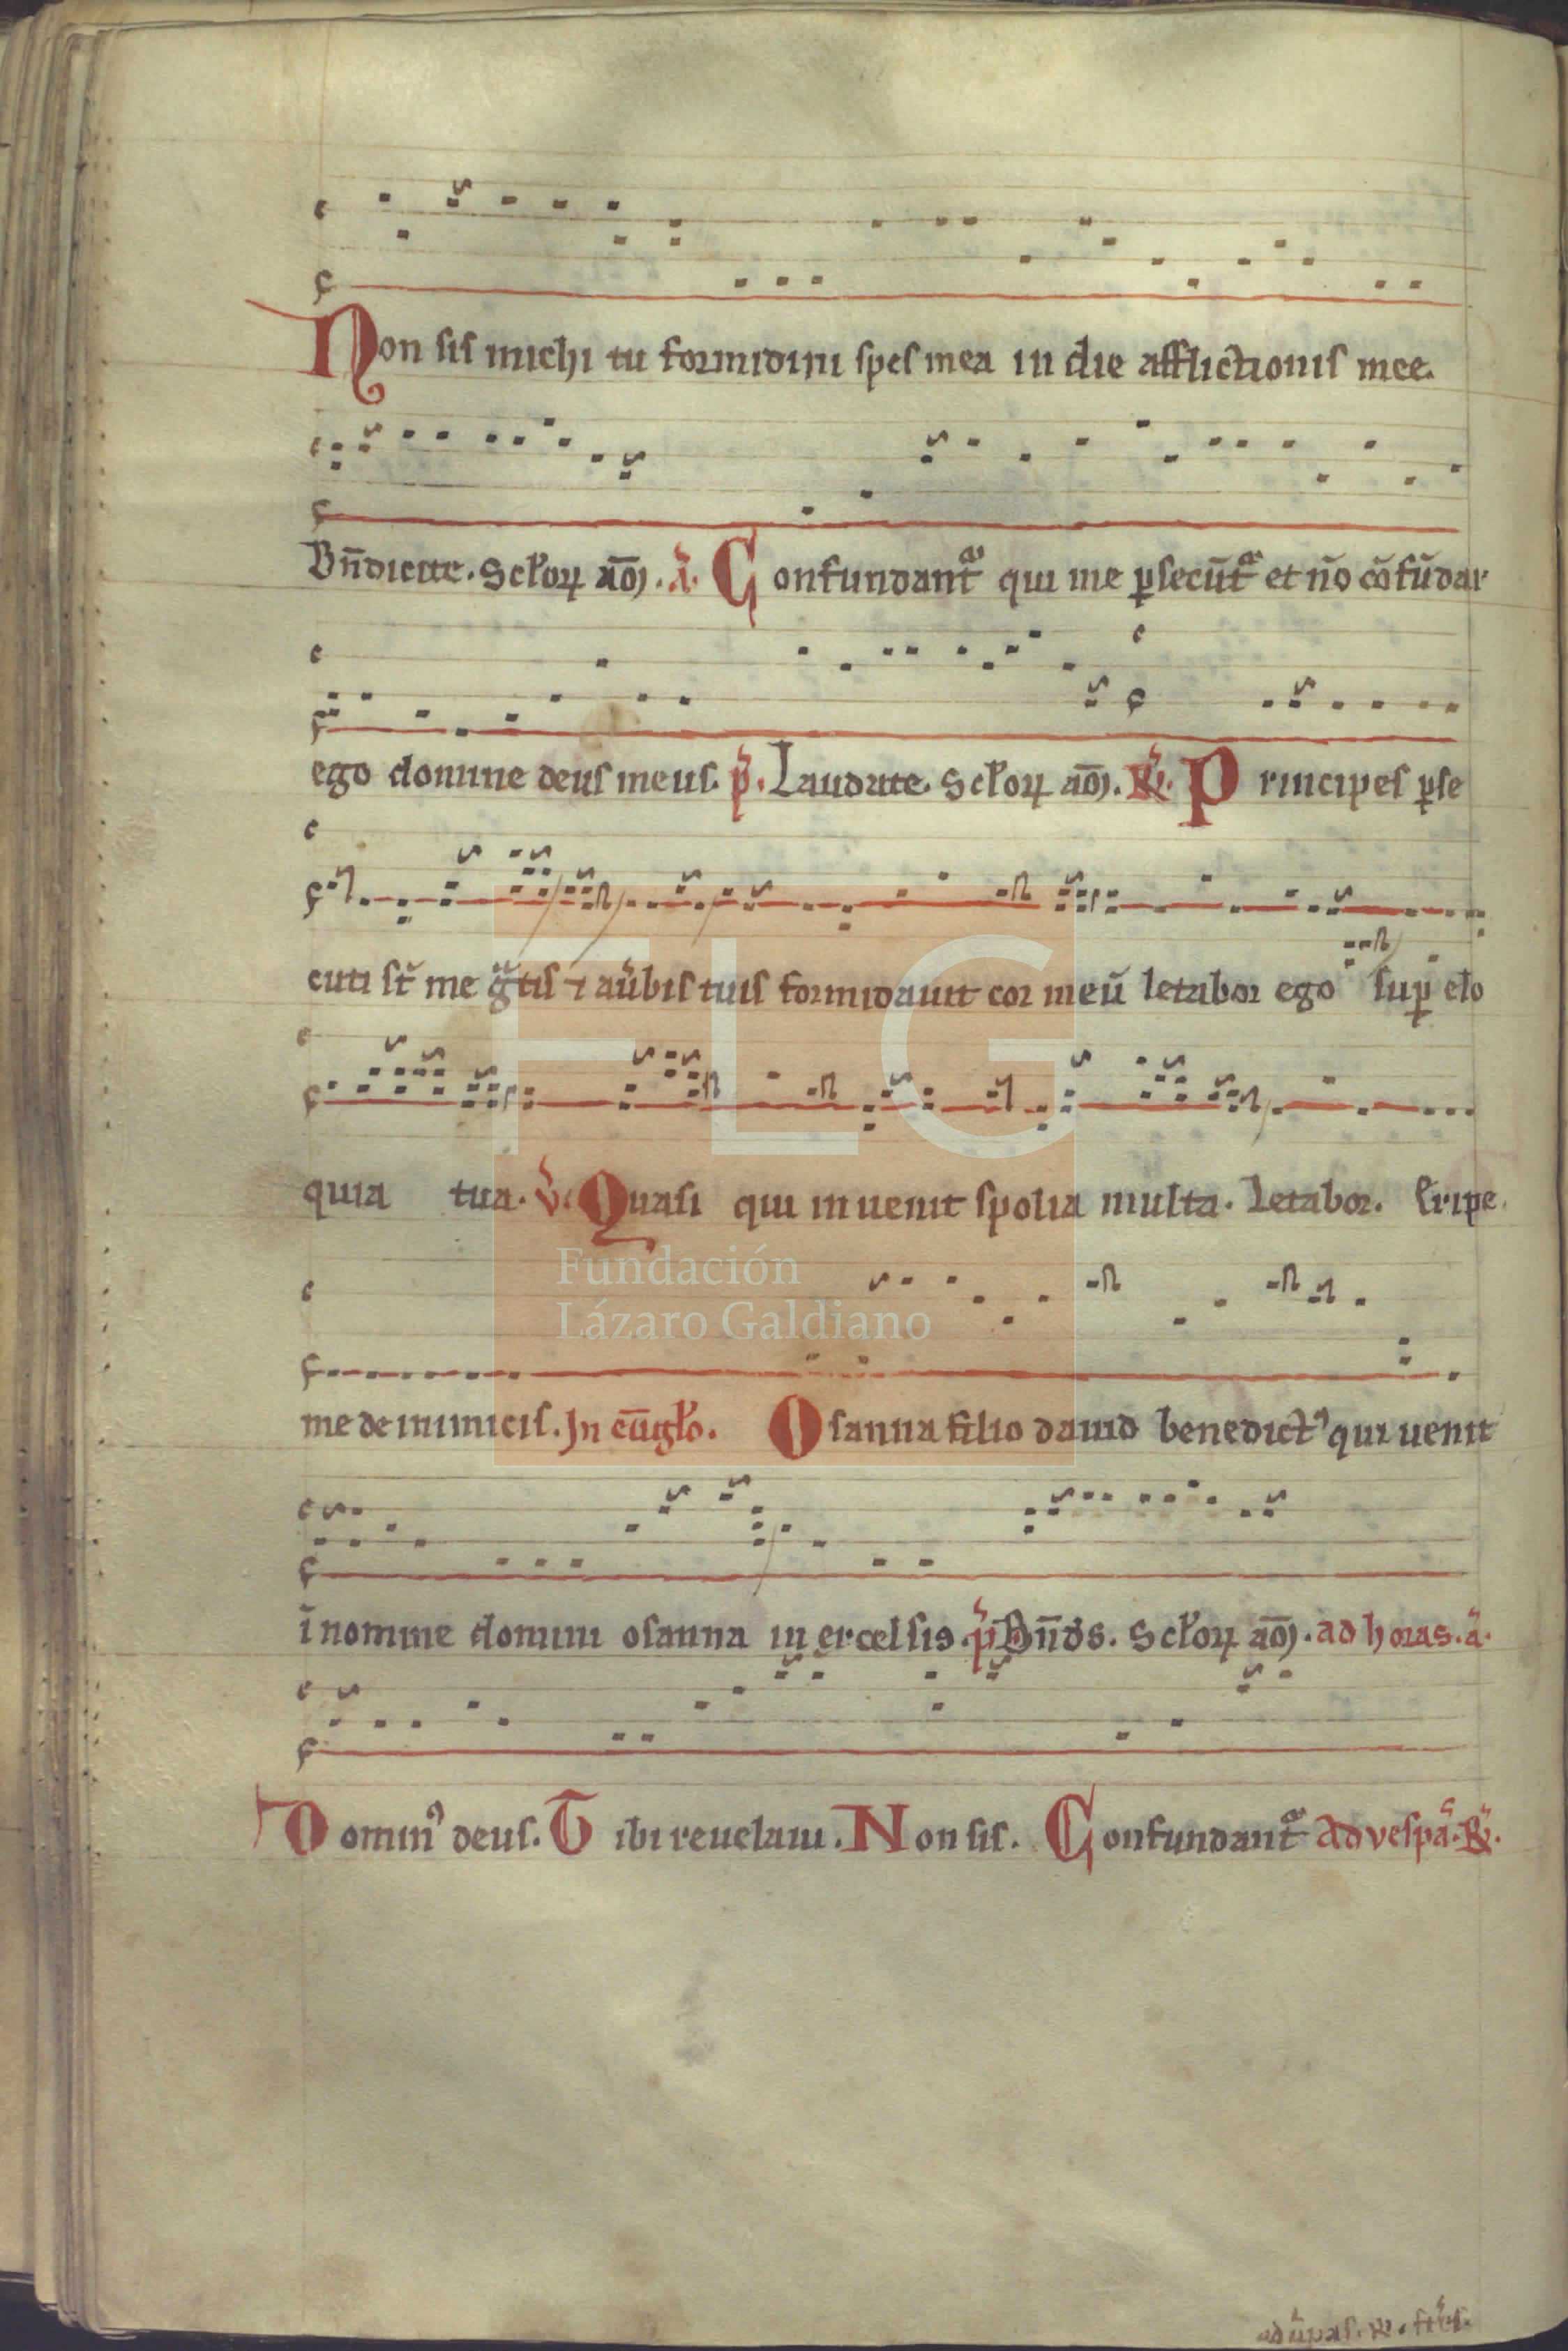 Non sis michi tu formidini spes mea in die afflictionis mee.
Bn̄dicite. Sc̄loꝝ am̄. a̓. Confundant᷑ qui me ꝑsecūt᷑ et nō cōfūdar
ego domine deus meus. p̓. Laudate. Sc̄loꝝ am̄. R̓. Principes ꝑse
cuti st̄ me gͣtis ⁊ au̓bis tuis formidauit cor meū letabor ego suꝑ elo
quia tua. v̓. Quasi qui inuenit spolia multa. Letabor. Eripe
me de inimicis. In eu̅gl̄o. Osanna filio dauid benedictꝰ qui uenit
ī nomine domini osanna in excelsis. p̓. Bn̄ds. Sc̄loꝝ am̄. ad horas. a̓.
Dominꝰ deus. Tibi reuelaui. Non sis. Confundant᷑ Ad vespa̓. R̓.
FLG
Fundación
Lázaro Galdiano